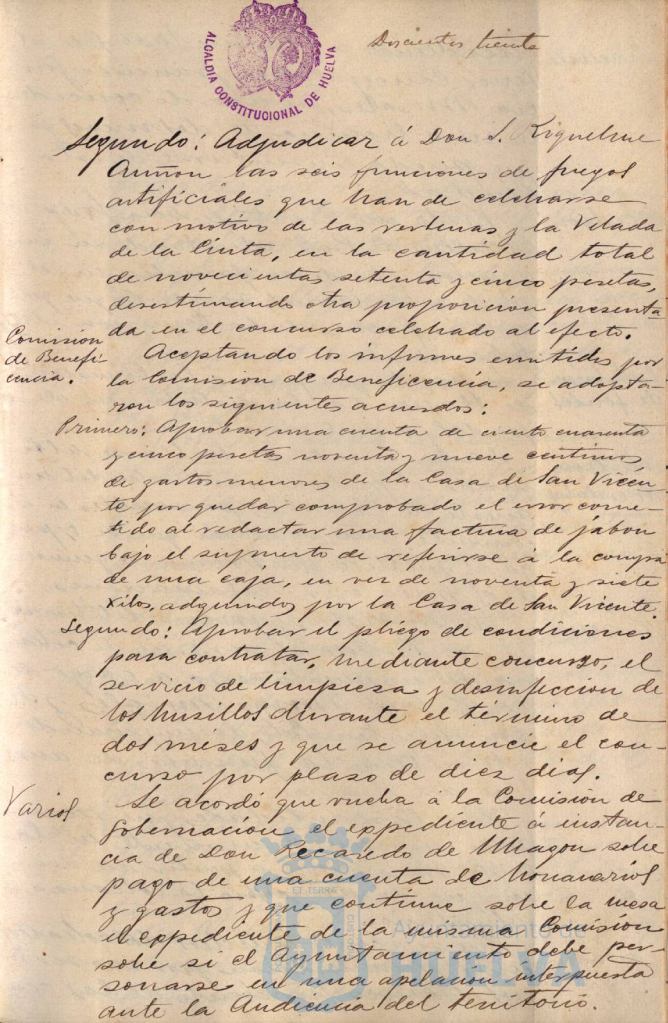 Doscientos treinta
ALCALDIA CONSTITUCIONAL DE HUELVA
Segundo: Adjudicar á Don S. Riquelme
Auñon las seis funciones de fuegos
artificiales que han de celebrarse
con motivo de las verbenas y la Velada
de la Cinta, en la cantidad total
de novecientas setenta y cinco pesetas,
desestimando otra proposicion presenta-
da en el concurso celebrado al efecto.
Comision
de Benefi-
cencia.
Aceptando los informes emitidos por
la Comision de Beneficencia, se adopta-
ron los siguientes acuerdos:
Primero: Aprobar una cuenta de ciento cuarenta
y cinco pesetas noventa y nueve centimos
de gastos menores de la Casa de San Vicen-
te por quedar comprobado el error come-
tido al redactar una factura de jabon
bajo el supuesto de referirse á la compra
de una caja, en vez de noventa y siete
kilos, adquiridos por la Casa de San Vicente.
Segundo: Aprobar el pliego de condiciones
para contratar, mediante concurso, el
servicio de limpieza y desinfeccion de
los husillos durante el término de
dos meses y que se anuncie el con-
curso por plazo de diez dias.
Varios
Se acordó que vuelva á la Comision de
Gobernación el expediente á instan-
cia de Don Recaredo de Uhagon sobre
pago de una cuenta de honorarios
y gastos y que continue sobre la mesa
el expediente de la misma Comision
sobre si el Ayuntamiento debe per-
sonarse en una apelación interpuesta
ante la Audiencia del territorio.
Ayuntamiento de
HUELVA